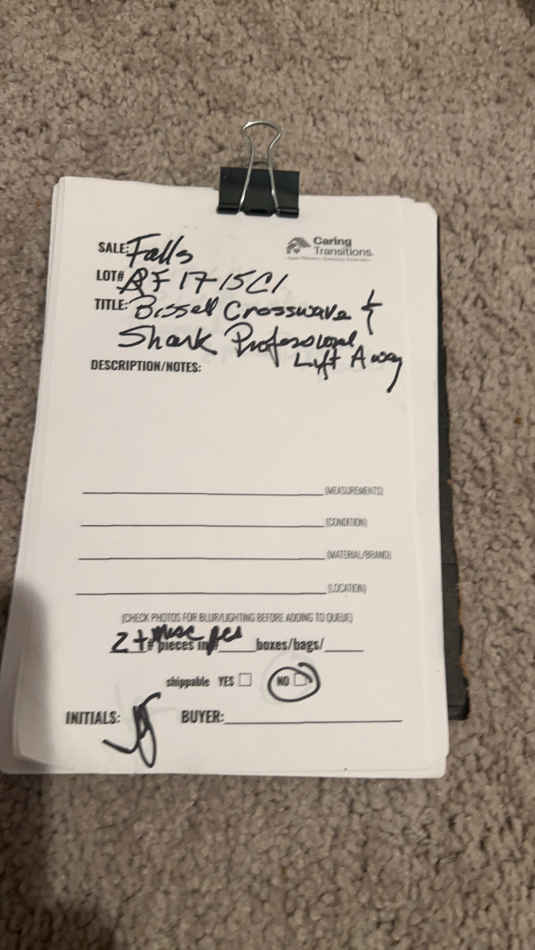 Caring
Transitions.
SALE: Falls
LOT# RF 17-15C1
TITLE: Bissell Crosswave &
Shark Professional
Lift Away
DESCRIPTION/NOTES:
(MEASUREMENTS)
(CONDITION)
(MATERIAL/BRAND)
(LOCATION)
(CHECK PHOTOS FOR BLUR/LIGHTING BEFORE ADDING TO QUEUE)
2 + misc pcs
# pieces in # boxes/bags/
shippable YES NO
INITIALS: BUYER: